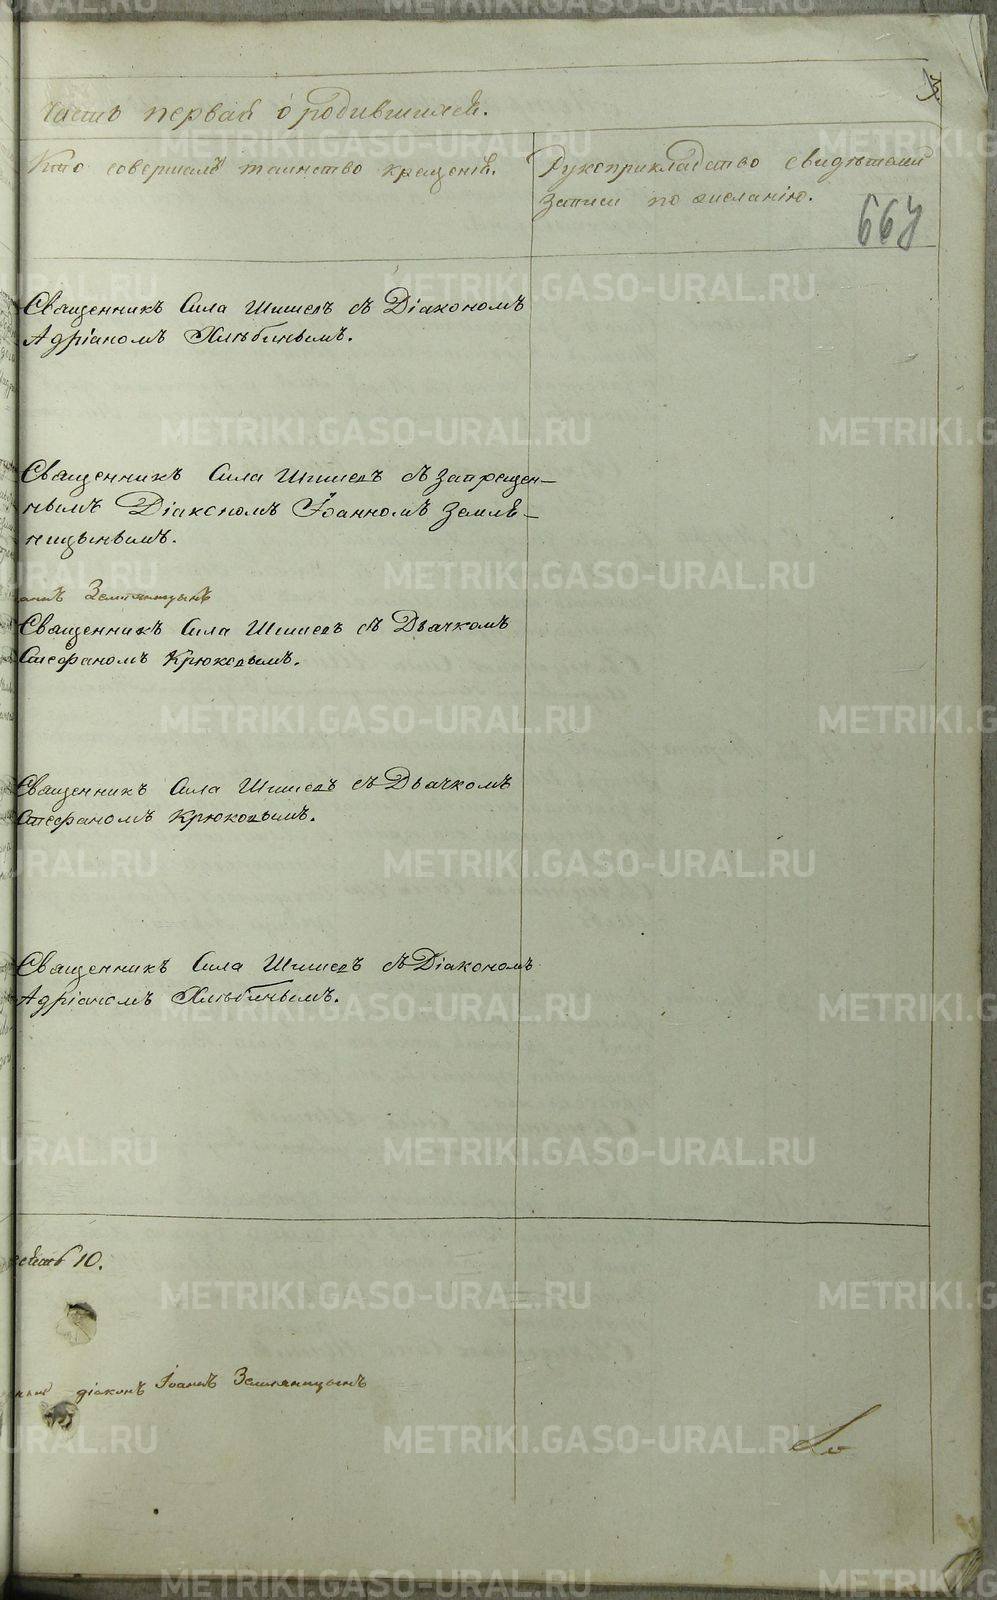 3.
Часть первая о родившихся.
Кто совершалъ таинство крещенія.
Рукоприкладство свидѣтелей
записи по желанію.
667
Священникъ Сила Шишевъ съ Діакономъ
Адріаномъ Хлѣбинымъ.
Священникъ Сила Шишевъ съ запрещен-
нымъ Діакономъ Іоанномъ Земле-
ницынымъ.
Земляницынъ
Священникъ Сила Шишевъ съ Дьячкомъ
Стефаномъ Крюковымъ.
Священникъ Сила Шишевъ съ Дьячкомъ
Стефаномъ Крюковымъ.
Священникъ Сила Шишевъ съ Діакономъ
Адріаномъ Хлѣбинымъ.
10.
діаконъ Іоаннъ Земляницынъ
METRIKI.GASO-URAL.RU